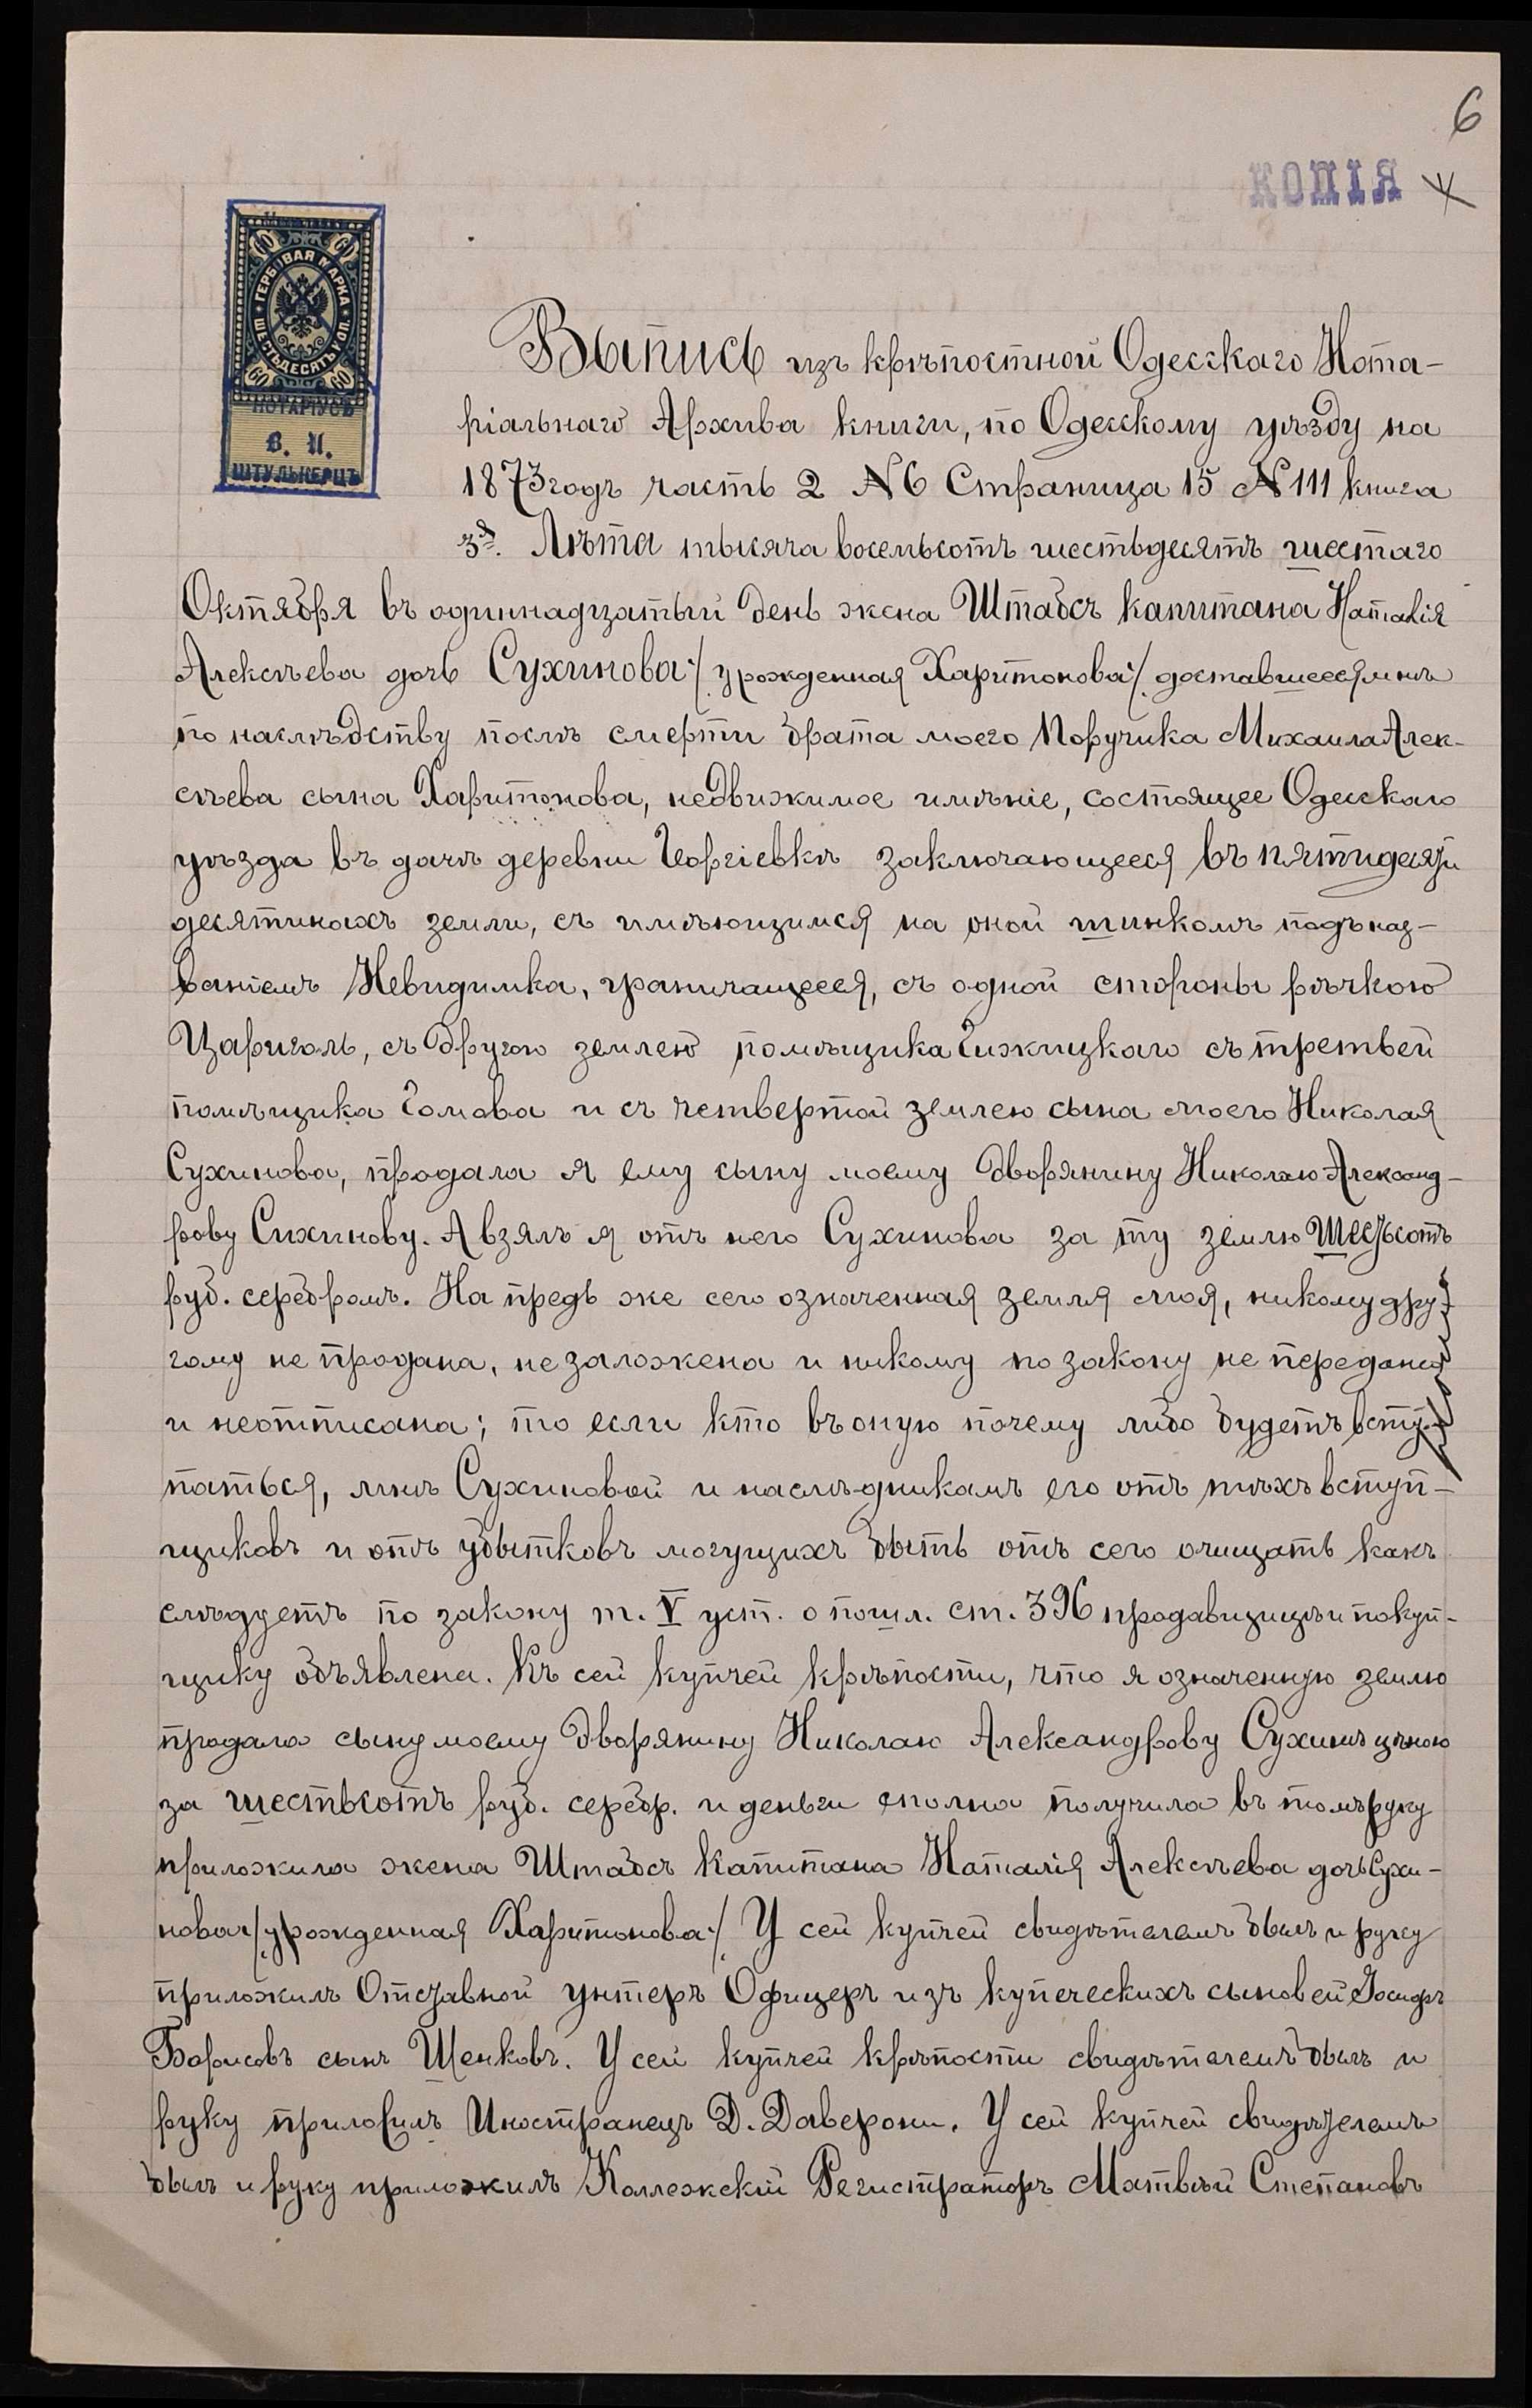 6
КОПІЯ
60 60
ГЕРБОВАЯ МАРКА
ШЕСТЬДЕСЯТЪ КОП.
60 60
НОТАРІУСЪ
В. И.
ШТУЛЬКЕРЦЪ
Выпись изъ крѣпостной Одесскаго Нота-
ріальнаго Архива книги, по Одесскому уѣзду на
1873 годъ часть 2 № 6 Страница 15 № 111 книга
3я. Лѣта тысяча восемьсотъ шестьдесятъ шестаго
Октября въ одиннадцатый день жена Штабсъ капитана Наталія
Алексѣева дочь Сухинова /урожденная Харитонова/ доставшееся мнѣ
по наслѣдству послѣ смерти брата моего Поручика Михаила Алек-
сѣева сына Харитонова, недвижимое имѣніе, состоящее Одесскаго
уѣзда въ дачѣ деревни Георгіевкѣ заключающееся въ пятидесяти
десятинахъ земли, съ имѣющимся на оной шинкомъ подъ наз-
ваніемъ Невидимка, граничащееся, съ одной стороны рѣчкою
Царигалъ, съ другою землею помѣщика Гижицкаго съ третьей
помѣщика Гомова и съ четвертой землею сына моего Николая
Сухинова, продала я ему сыну моему дворянину Николаю Александ-
рову Сихинову. А взялъ я отъ него Сухинова за ту землю Шестьсотъ
руб. серебромъ. На предь же сего означенная земля моя, никому дру-
гому не продана, не заложена и никому по закону не передана
и неотписана; то если кто въ оную почему либо будетъ всту-
паться, мнѣ Сухиновой и наслѣдникамъ его отъ тѣхъ вступ-
щиковъ и отъ убытковъ могущихъ быть отъ сего очищать какъ
слѣдуетъ по закону т. V уст. о пошл. ст. 396 продавщицѣ и покуп-
щику объявлена. Къ сей купчей крѣпости, что я означенную землю
продала сыну моему дворянину Николаю Александрову Сухинѣ цѣною
за шестьсотъ руб. серебр. и деньги сполна получила въ томъ руку
приложила жена Штабсъ Капитана Наталія Алексѣева дочь Сухи-
нова /урожденная Харитонова/ У сей купчей свидѣтелемъ былъ и руку
приложилъ Отставной унтеръ Офицеръ изъ купеческихъ сыновей
Борисовъ сынъ Щенковъ. У сей купчей крѣпости свидѣтелемъ былъ и
руку приложилъ Иностранецъ Д. Даверони. У сей купчей свидѣтелемъ
былъ и руку приложилъ Коллежскій Регистраторъ Матвѣй Степановъ